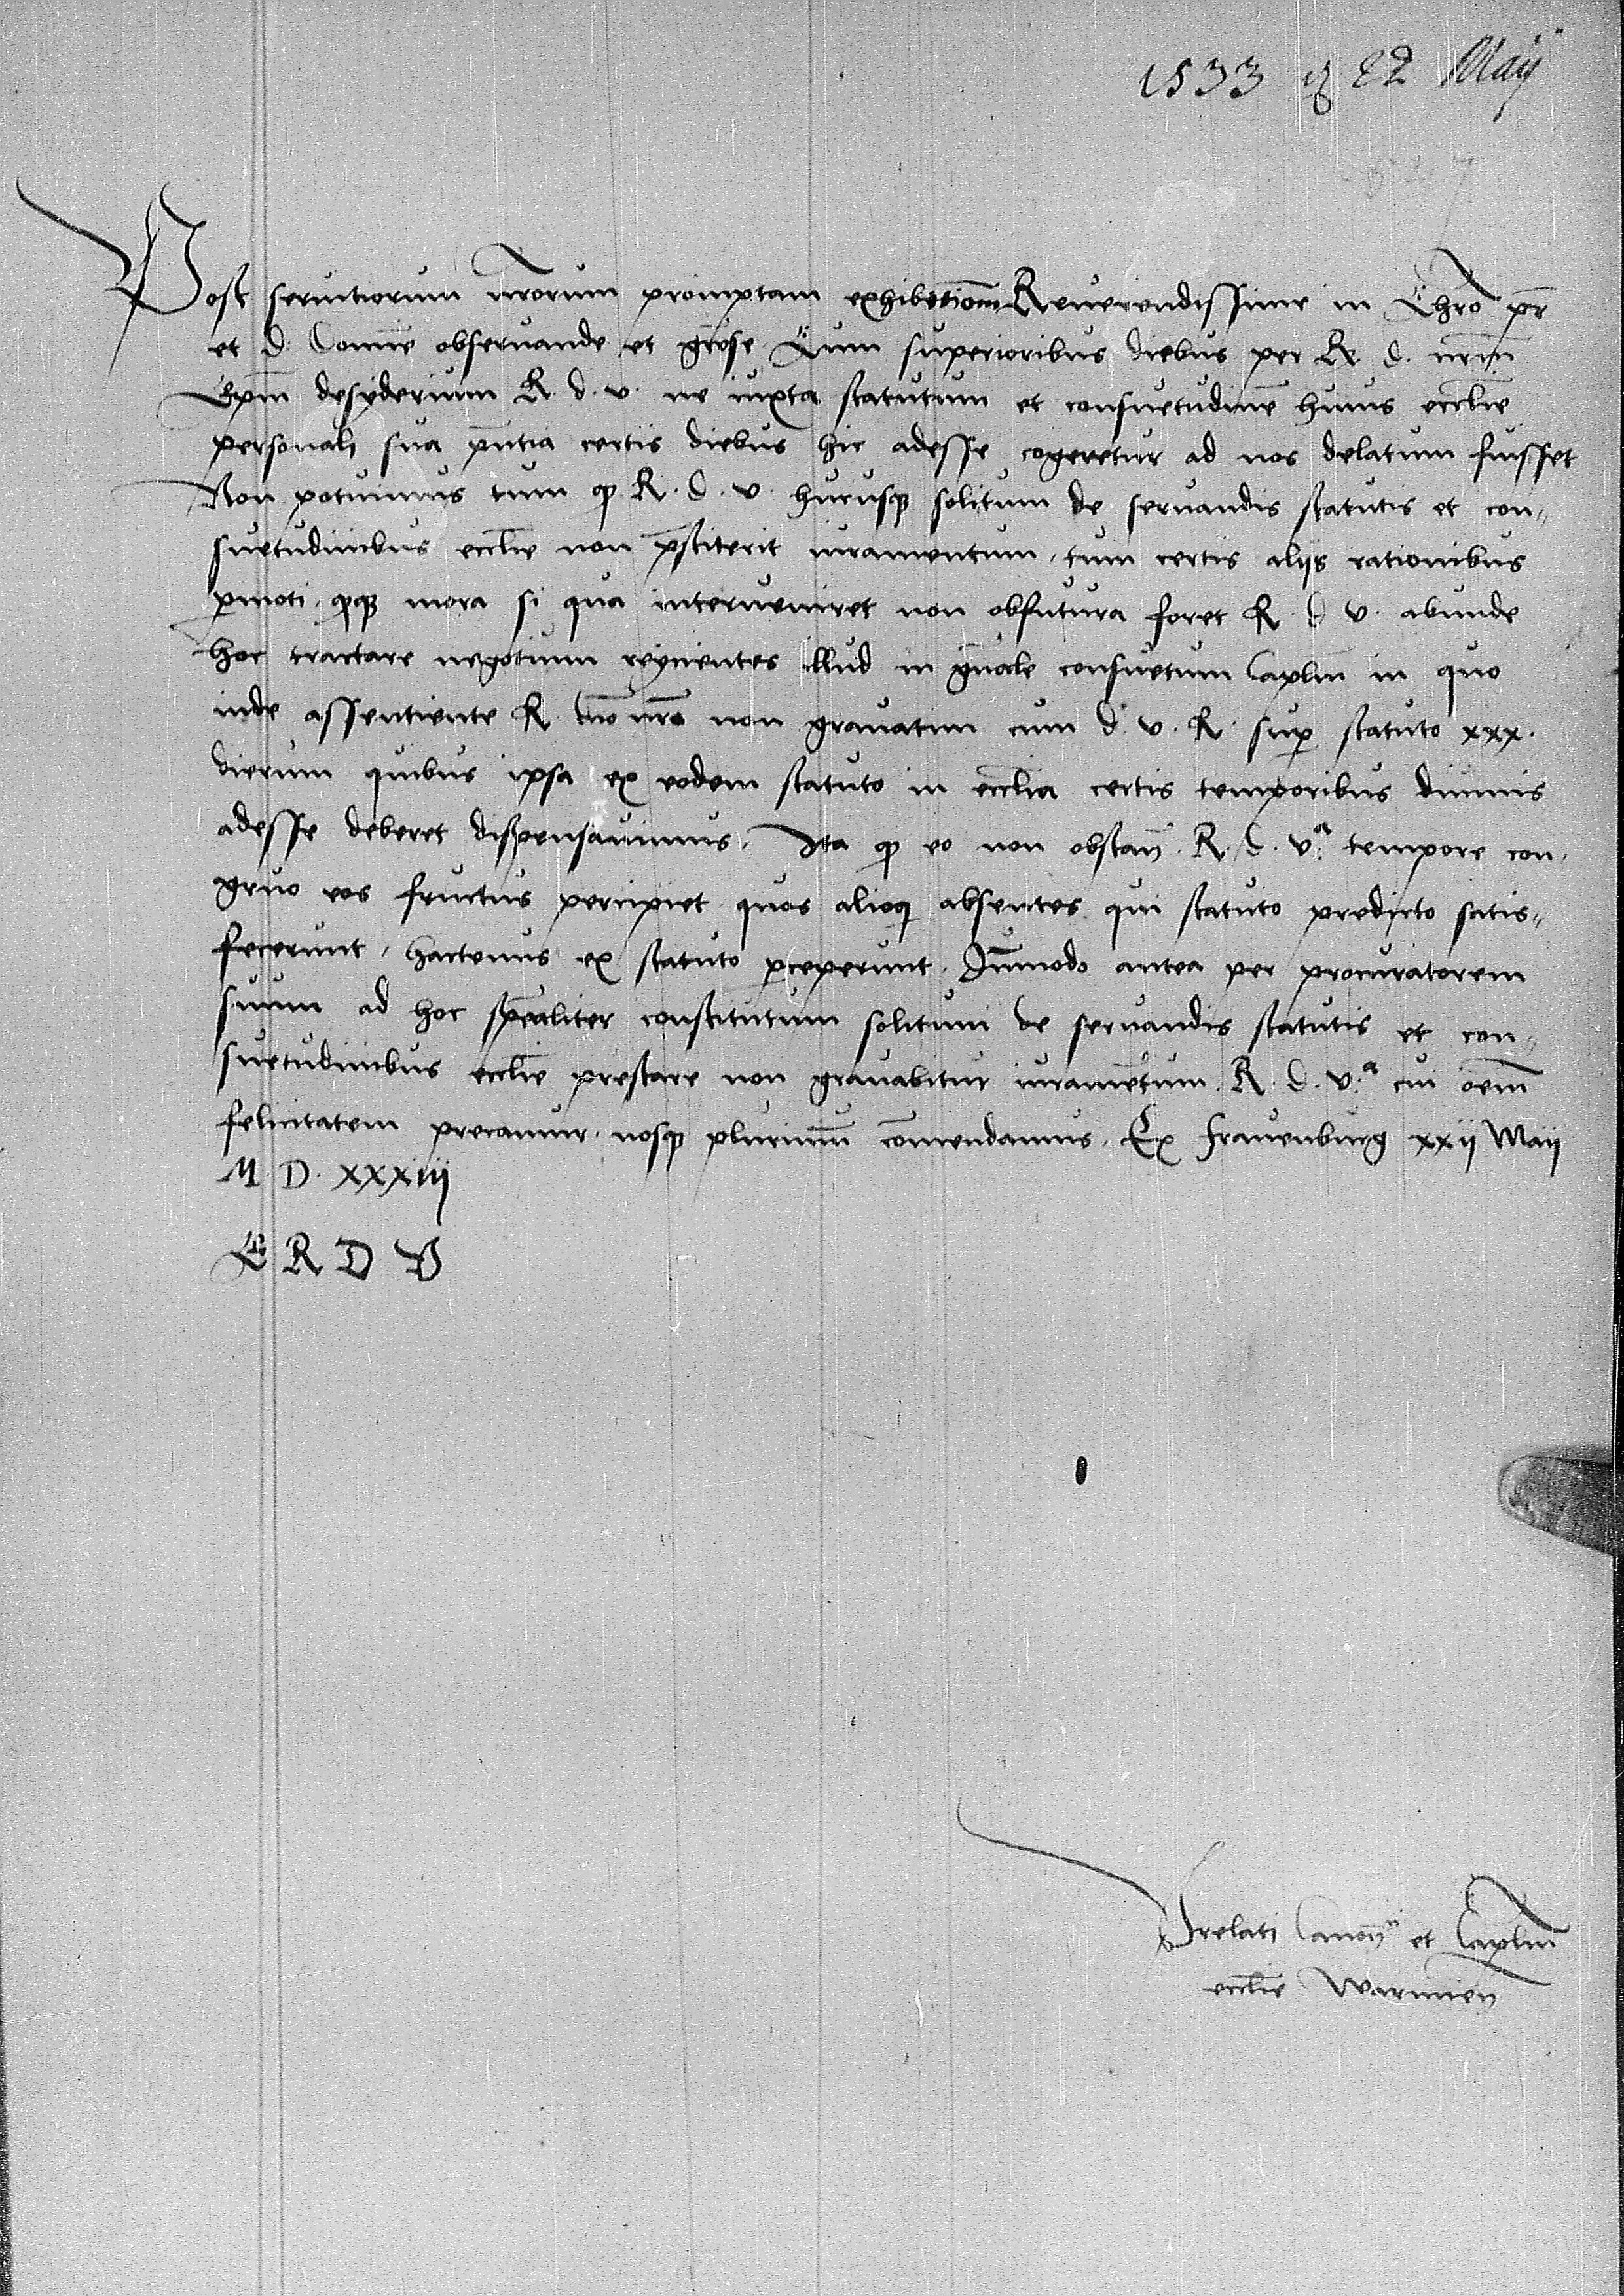 1533 22 Maij
547
Post seruitiorum nrorum promptam exhibitionem Reuerendissime in Chro pr
et d. Domine obseruande et grose Cum superioribus diebus per R d. nrm
Epm desyderium R. d. v. ne iuxta statutum et consuetudine huius ecclie
personali sua pntia certis diebus hic adesse cogeretur ad nos delatum fuisset
Non potuimus tum qp R. d. v. hucusq solitum de seruandis statutis et con„
suetudinibus ecclie non pstiterit iuramentum, tum certis aliis rationibus
pmoti, qqz mora si qua interueniret non obfutura foret R. d v. abunde
hoc tractare negotium reijcientes illud in gnale consuetum Caplm in quo
inde assentiente R. dno nro non grauatim cum d. v. R. sup statuto xxx.
dierum quibus ipsa ex eodem statuto in ecclia certis temporibus diuinis
adesse deberet dispensauimus, Ita qp eo non obstan R. d. v.ª tempore con„
gruo eos fructus percipiet quos alioq absentes qui statuto predicto satis„
fecerunt, hactenus ex statuto pceperunt, Dummodo antea per procuratorem
suum ad hoc specialiter constitutum solitum de seruandis statutis et con„
suetudinibus ecclie prestare non grauabitur iuramentum. R. d. v.ª cui oem
felicitatem precamur, nosq plurimum comendamus, Ex Frauenburg xxij Maij
M. D. XXXIIJ
E R D V
Prelati Canonci et Caplm
ecclie Warmien